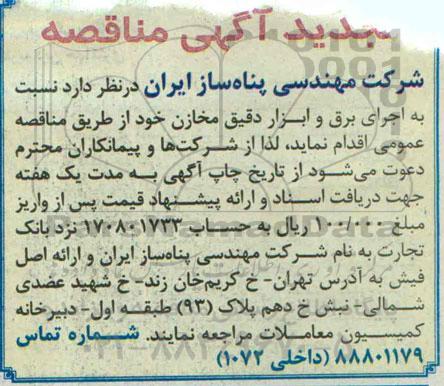 تجدید آگهی مناقصه
شرکت مهندسی پناه‌ساز ایران درنظر دارد نسبت
به اجرای برق و ابزار دقیق مخازن خود از طریق مناقصه
عمومی اقدام نماید، لذا از شرکت‌ها و پیمانکاران محترم
دعوت می‌شود از تاریخ چاپ آگهی به مدت یک هفته
جهت دریافت اسناد و ارائه پیشنهاد قیمت پس از واریز
مبلغ ۱۰۰/۰۰۰ ریال به حساب ۱۷۰۸۰۱۷۳۳ نزد بانک
تجارت به نام شرکت مهندسی پناه‌ساز ایران و ارائه اصل
فیش به آدرس تهران- خ کریم‌خان زند- خ شهید عضدی
شمالی- نبش خ دهم پلاک (۹۳) طبقه اول- دبیرخانه
کمیسیون معاملات مراجعه نمایند. شماره تماس
۸۸۸۰۱۱۷۹ (داخلی ۱۰۷۲)